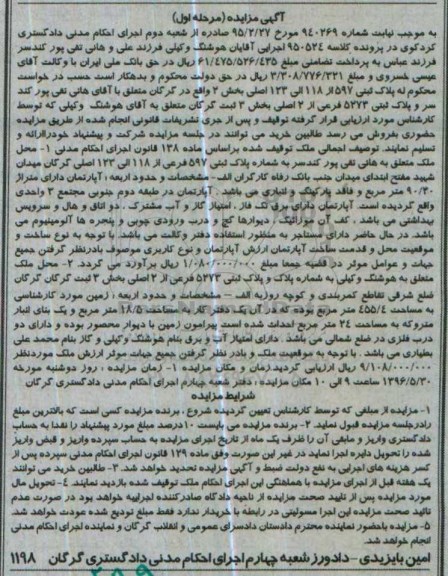 آگهی مزایده (مرحله اول)
به موجب نیابت شماره ۹۴۰۳۶۹ مورخ ۹۵/۲/۲۷ صادره از شعبه دوم اجرای احکام مدنی دادگستری
کردکوی در پرونده کلاسه ۹۵۰۵۲۴ اجرایی آقایان هوشنگ وکیلی فرزند علی و هانی تقی پور کندسر
فرزند عباس به پرداخت تضامنی مبلغ ۶۱/۴۷۵/۵۲۶/۴۳۵ ریال در حق بانک ملی ایران با وکالت آقای
عیسی خسروی و مبلغ ۳/۳۰۸/۷۷۶/۳۲۱ ریال در حق دولت محکوم و بدهکار است حسب در خواست
محکوم له پلاک ثبتی ۵۹۷ از ۱۱۸ الی ۱۲۳ اصلی بخش ۲ واقع در گرگان متعلق به آقای هانی تقی پور کند
سر و پلاک ثبتی ۵۲۷۳ فرعی از ۲ اصلی بخش ۳ ثبت گرگان متعلق به آقای هوشنگ وکیلی که توسط
کارشناس مورد ارزیابی قرار گرفته توقیف و پس از جری تشریفات قانونی انجام شده از طریق مزایده
حضوری بفروش می رسد طالبین خرید می توانند در جلسه مزایده شرکت و پیشنهاد خودراارائه و
تسلیم نمایند. توصیف اجمالی ملک توقیف شده براساس ماده ۱۳۸ قانون اجرای احکام مدنی ۱- محل
ملک متعلق به هانی تقی پور کندسر به شماره پلاک ثبتی ۵۹۷ فرعی از ۱۱۸ الی ۱۲۳ اصلی گرگان میدان
شهید مفتح ابتدای میدان جنب بانک رفاه کارگران الف- مشخصات و حدود اربعه : آپارتمان دارای متراژ
۹۰/۳۰ متر مربع و فاقد پارکینگ و انباری می باشد . آپارتمان در طبقه دوم جنوبی مجتمع ۳ واحدی
واقع گردیده است. آپارتمان دارای برق تک فاز ، امتیاز گاز و آب مشترک ، دو اتاق و هال و سرویس
بهداشتی می باشد . کف آن موزائیک ، دیوارها گچ و درب ورودی چوبی و پنجره ها آلومینیوم می
باشد. در حال حاضر دارای مستاجر به منظور استفاده دفتر وکالت می باشد. با توجه به نوع ساخت و
موقعیت محل و قدمت ساخت آپارتمان ارزش آپارتمان و نوع کاربری موصوف بادرنظر گرفتن جمیع
جهات و عوامل موثر در قضیه جمعا مبلغ ۱/۰۸۰/۰۰۰/۰۰۰ ریال برآورد می گردد. ۲- محل ملک
متعلق به هوشنگ وکیلی به شماره پلاک و پلاک ثبتی ۵۲۷۳ فرعی از ۲ اصلی بخش ۳ ثبت گرگان گرگان
ضلع شرقی تقاطع کمربندی و کوچه روزبه الف – مشخصات و حدود اربعه : زمین مورد کارشناسی
به مساحت ۴۵۵/۴ متر مربع بوده که در آن یک دفتر کار به مساحت ۱۸/۵ متر مربع و یک بنای انبار
متروکه به مساحت ۲۴ متر مربع احداث شده است پیرامون زمین با دیوار محصور بوده و دارای دو
درب فلزی در ضلع شمالی می باشد . دارای امتیاز آب و برق بنام هوشنگ وکیلی و گاز بنام محمد علی
بطهاری می باشد . با توجه به موقعیت ملک و بادر نظر گرفتن جمیع جهات موثر ارزش ملک موردنظر
۹/۱۰۸/۰۰۰/۰۰۰ ریال ارزیابی گردید.زمان و مکان مزایده ۱- زمان مزایده : روز دوشنبه مورخه
۱۳۹۶/۵/۳۰ ساعت ۹ الی ۱۰ مکان مزایده : دفتر شعبه چهارم اجرای احکام مدنی دادگستری گرگان
شرایط مزایده
۱- مزایده از مبلغی که توسط کارشناس تعیین گردیده شروع ، برنده مزایده کسی است که بالاترین مبلغ
رادرجلسه مزایده قبول نماید. ۲- برنده مزایده می بایست ۱۰درصد مبلغ مورد پیشنهاد را نقدا به حساب
دادگستری واریز و مابقی آن را ظرف یک ماه از تاریخ اجرای مزایده به حساب سپرده واریز و قبض واریز
شده را تحویل دایره اجرا نماید در غیر این صورت وفق ماده ۱۲۹ قانون اجرای احکام مدنی سپرده پس از
کسر هزینه های اجرایی به نفع دولت ضبط و آگهی مزایده تجدید خواهد شد. ۳- طالبین خرید می توانند
یک هفته قبل از اجرای مزایده با هماهنگی این اجرای احکام ملک توقیف شده بازدید نمایند. ۴- تحویل مال
مورد مزایده پس از تایید صحت مزایده از ناحیه دادگاه صادرکننده اجراییه خواهد بود در صورت عدم
تائید صحت مزایده این اجرا مسولیتی در رابطه با خریدار ندارد فقط مبلغ تودیع شده عودت خواهد شد.
۵- مزایده باحضور نماینده محترم دادستان دادسرای عمومی و انقلاب گرگان و نماینده اجرای احکام مدنی
انجام خواهد شد.
امین بایزیدی - دادورز شعبه چهارم اجرای احکام مدنی دادگستری گرگان ۱۱۹۸